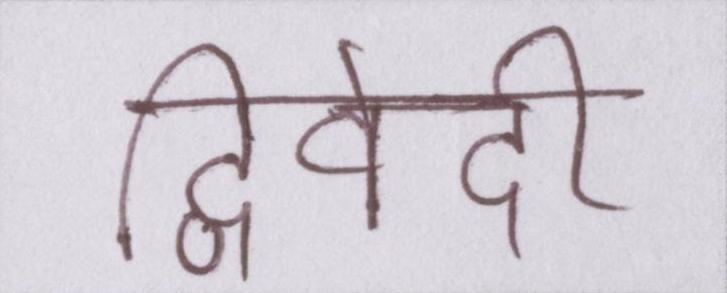 द्विवेदी